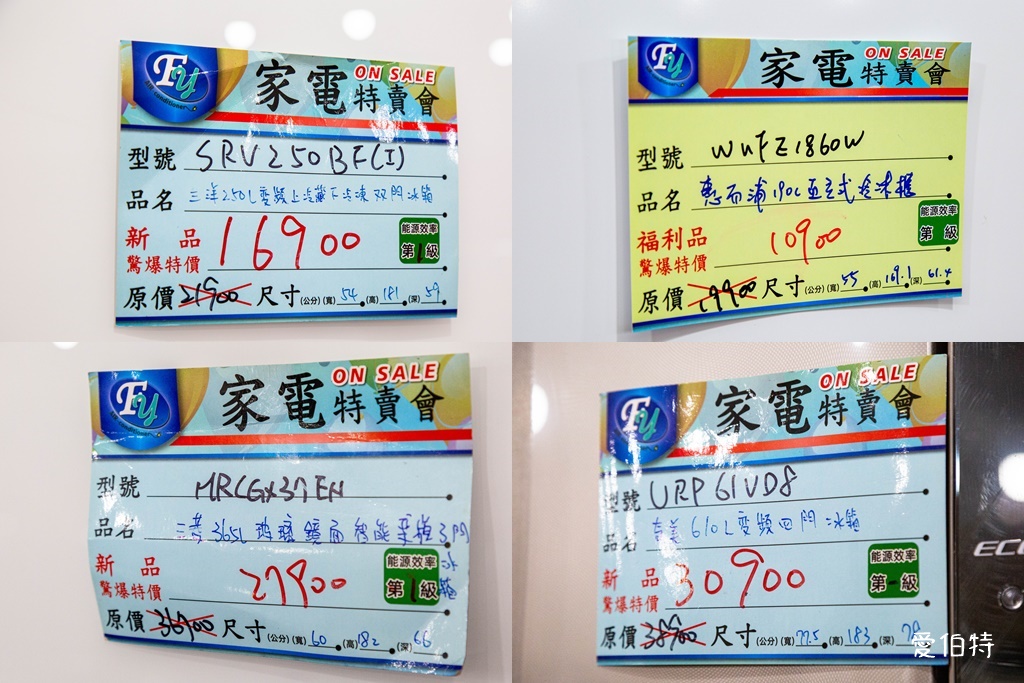 Fy
家電特賣會
ON SALE
型號 SRV250BF(I)
品名 三洋250L變頻上冷藏下冷凍双門冰箱
新品
驚爆特價 16900
能源效率
第1級
原價 21900 尺寸(公分)(寬)54(高)181(深)59
Fy
家電特賣會
ON SALE
型號 WUFZ1860W
品名 惠而浦190L直立式冷凍櫃
福利品
驚爆特價 10900
能源效率
第級
原價 19900 尺寸(公分)(寬)55(高)169.1(深)61.4
Fy
家電特賣會
ON SALE
型號 MRCGX37EN
品名 三菱365L玻璃鏡面智能變頻3門冰箱
新品
驚爆特價 27900
能源效率
第1級
原價 36900 尺寸(公分)(寬)60(高)182(深)66
Fy
家電特賣會
ON SALE
型號 URP61VD8
品名 奇美610L變頻四門冰箱
新品
驚爆特價 30900
能源效率
第一級
原價 38900 尺寸(公分)(寬)77.5(高)183(深)
ECO
愛伯特